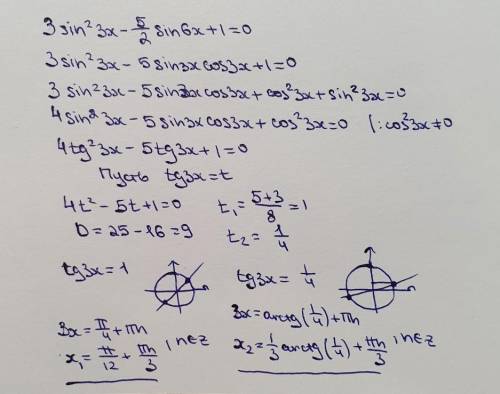 3 sin² 3x - 5/2 sin 6x + 1 = 0
3 sin² 3x - 5 sin 3x cos 3x + 1 = 0
3 sin² 3x - 5 sin 3x cos 3x + cos² 3x + sin² 3x = 0
4 sin² 3x - 5 sin 3x cos 3x + cos² 3x = 0 | : cos² 3x ≠ 0
4 tg² 3x - 5 tg 3x + 1 = 0
Пусть tg 3x = t
4t² - 5t + 1 = 0 t₁ = (5+3)/8 = 1
D = 25 - 16 = 9 t₂ = 1/4
tg 3x = 1 tg 3x = 1/4
3x = π/4 + πn 3x = arctg(1/4) + πn
x₁ = π/12 + πn/3, n∈Z x₂ = 1/3 arctg(1/4) + πn/3, n∈Z